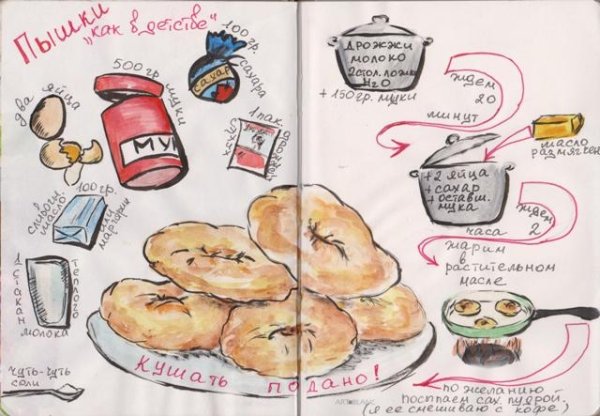 Пышки
„как в детстве"
два яйца
500 гр. муки
МУ
100 гр. сахара
сахар
1 пак. сухих дрожжей
100 гр.
сливочн. масло или маргарин
1 стакан теплого молока
чуть-чуть
соли
Кушать подано!
Дрожжи
молоко
2 стол. ложки
H2O
+150 гр. муки
ждем
20
минут
масло
размягчен
+2 яйца
+сахар
+оставш.
мука
ждем 2
часа
жарим
в
растительном
масле
по желанию
посыпаем сах. пудрой,
(я ее смешиваю с кофе)